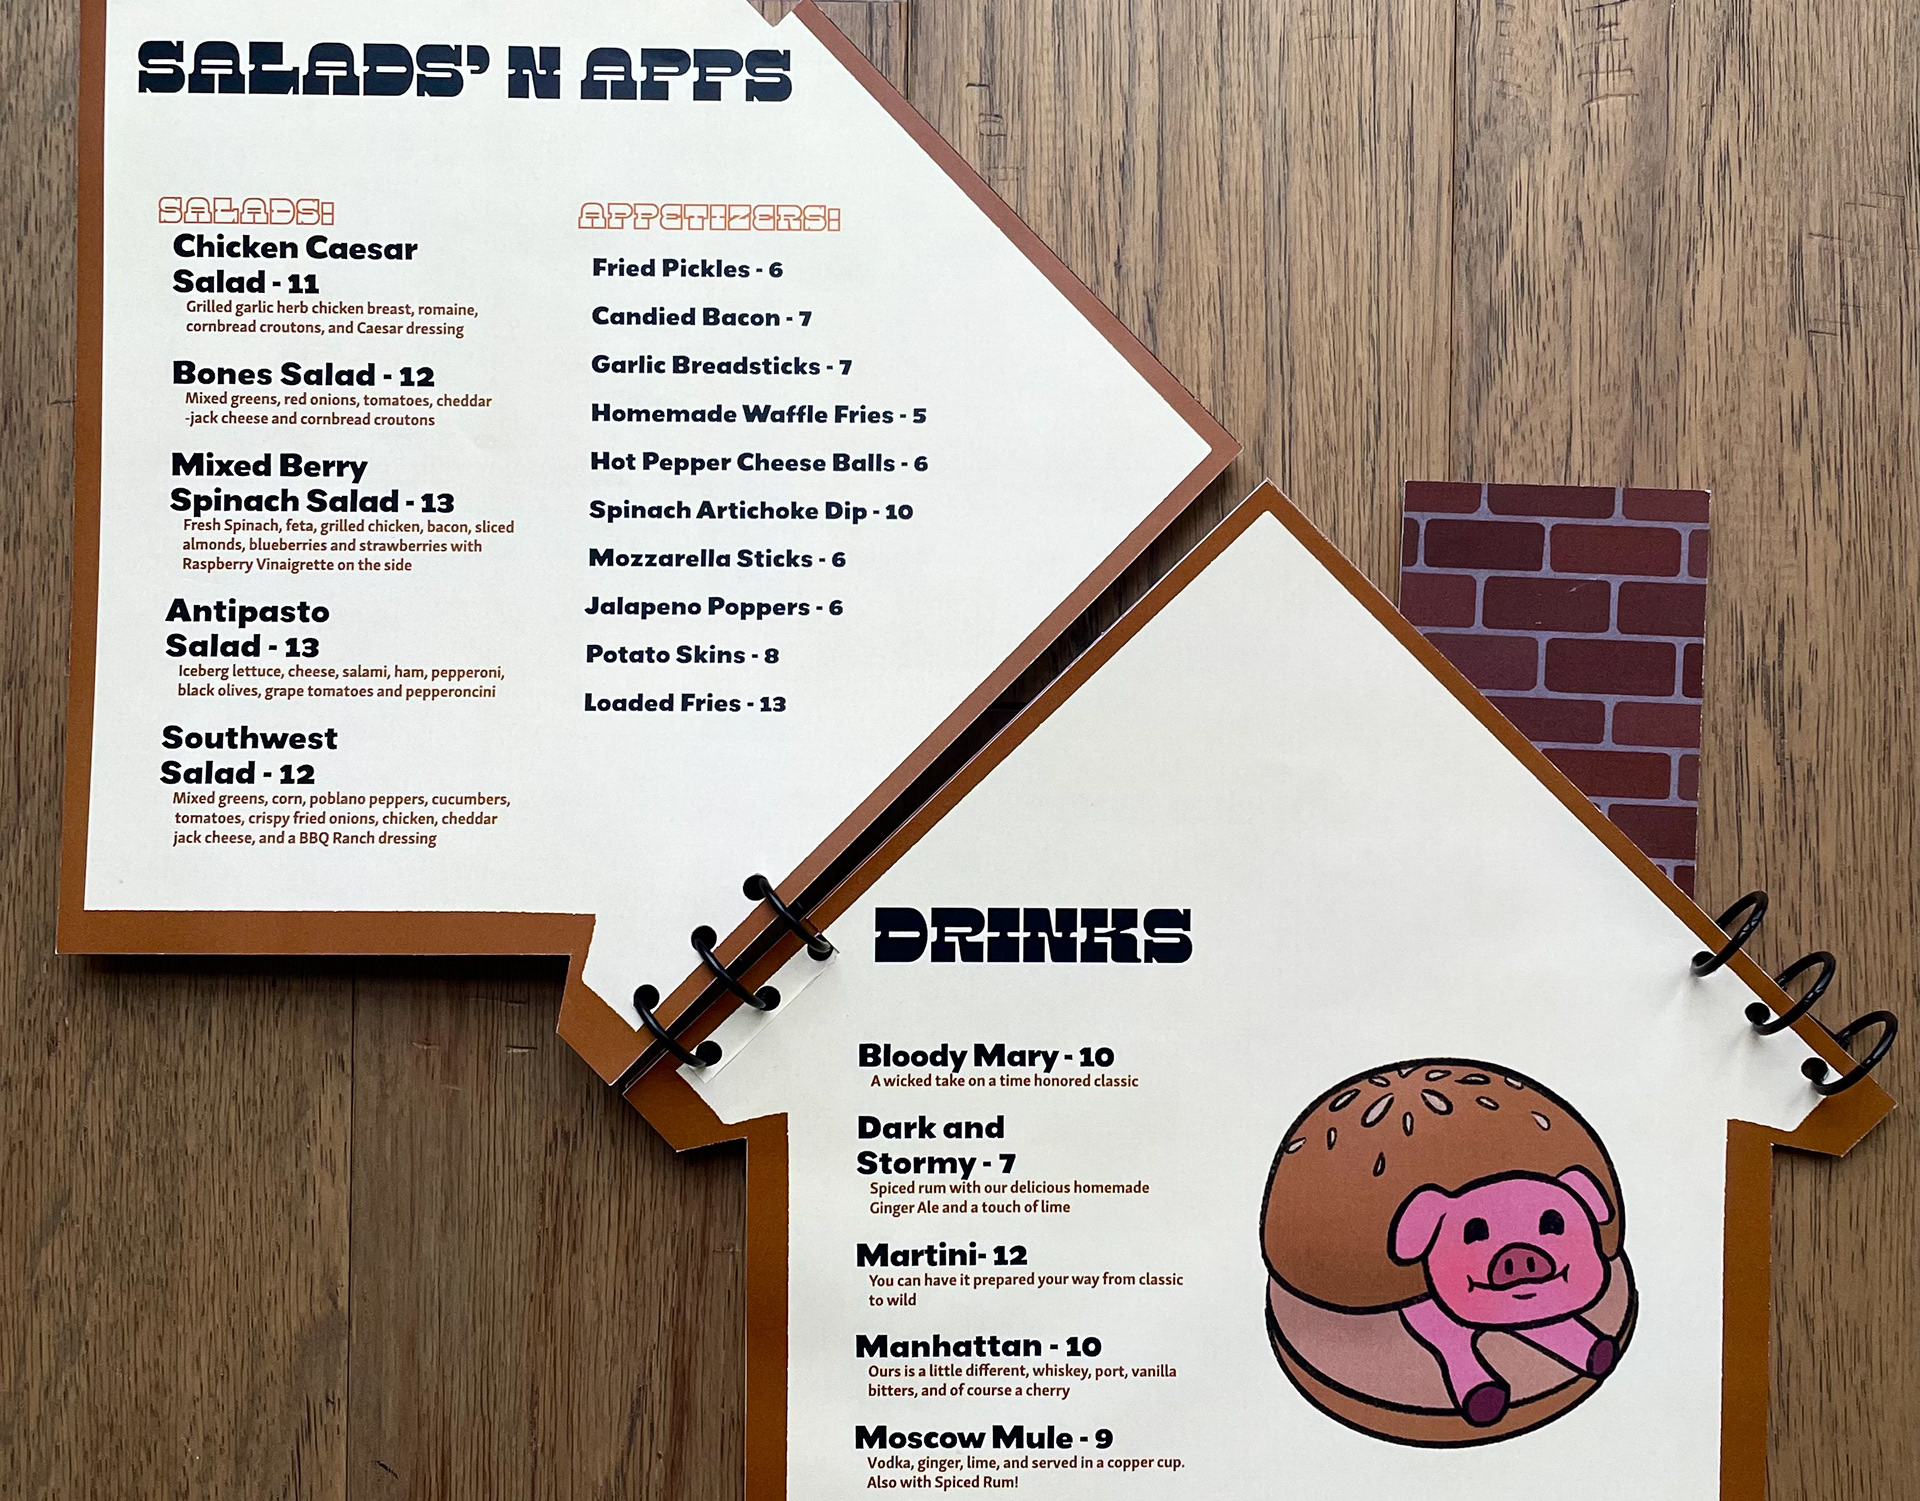 SALADS' N APPS
SALADS:
Chicken Caesar
Salad - 11
Grilled garlic herb chicken breast, romaine,
cornbread croutons, and Caesar dressing
Bones Salad - 12
Mixed greens, red onions, tomatoes, cheddar
-jack cheese and cornbread croutons
Mixed Berry
Spinach Salad - 13
Fresh Spinach, feta, grilled chicken, bacon, sliced
almonds, blueberries and strawberries with
Raspberry Vinaigrette on the side
Antipasto
Salad - 13
Iceberg lettuce, cheese, salami, ham, pepperoni,
black olives, grape tomatoes and pepperoncini
Southwest
Salad - 12
Mixed greens, corn, poblano peppers, cucumbers,
tomatoes, crispy fried onions, chicken, cheddar
jack cheese, and a BBQ Ranch dressing
APPETIZERS:
Fried Pickles - 6
Candied Bacon - 7
Garlic Breadsticks - 7
Homemade Waffle Fries - 5
Hot Pepper Cheese Balls - 6
Spinach Artichoke Dip - 10
Mozzarella Sticks - 6
Jalapeno Poppers - 6
Potato Skins - 8
Loaded Fries - 13
DRINKS
Bloody Mary - 10
A wicked take on a time honored classic
Dark and
Stormy - 7
Spiced rum with our delicious homemade
Ginger Ale and a touch of lime
Martini- 12
You can have it prepared your way from classic
to wild
Manhattan - 10
Ours is a little different, whiskey, port, vanilla
bitters, and of course a cherry
Moscow Mule - 9
Vodka, ginger, lime, and served in a copper cup.
Also with Spiced Rum!